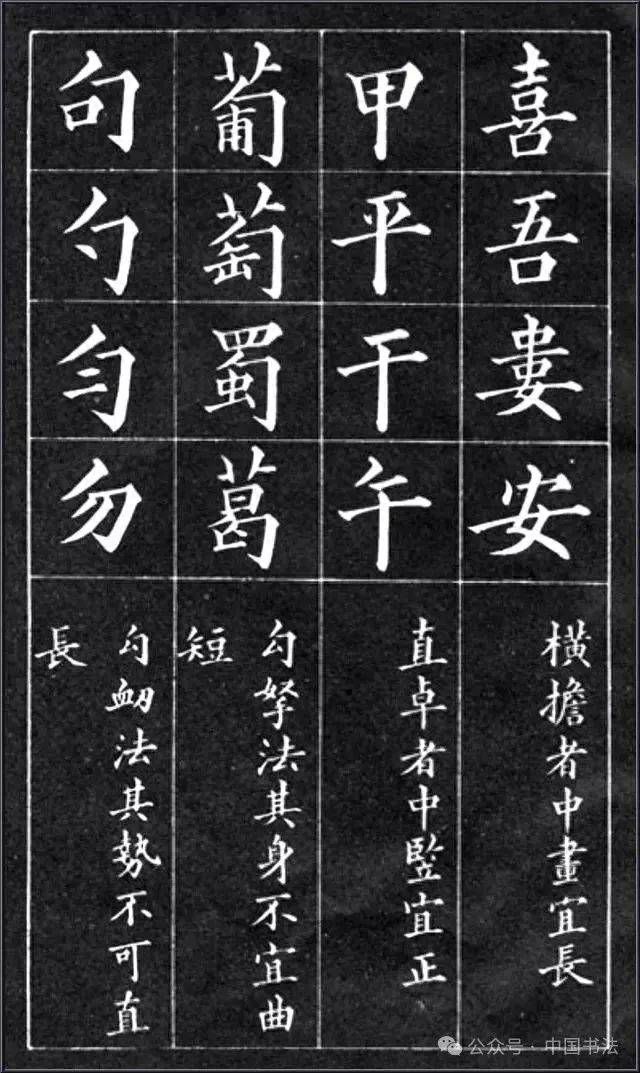 喜吾婁安
横擔者中畫宜長
甲平干午
直卓者中竪宜正
葡萄蜀葛
勾拏法其身不宜曲
短
句勺匀勿
勾衂法其勢不可直
長
公众号·中国书法